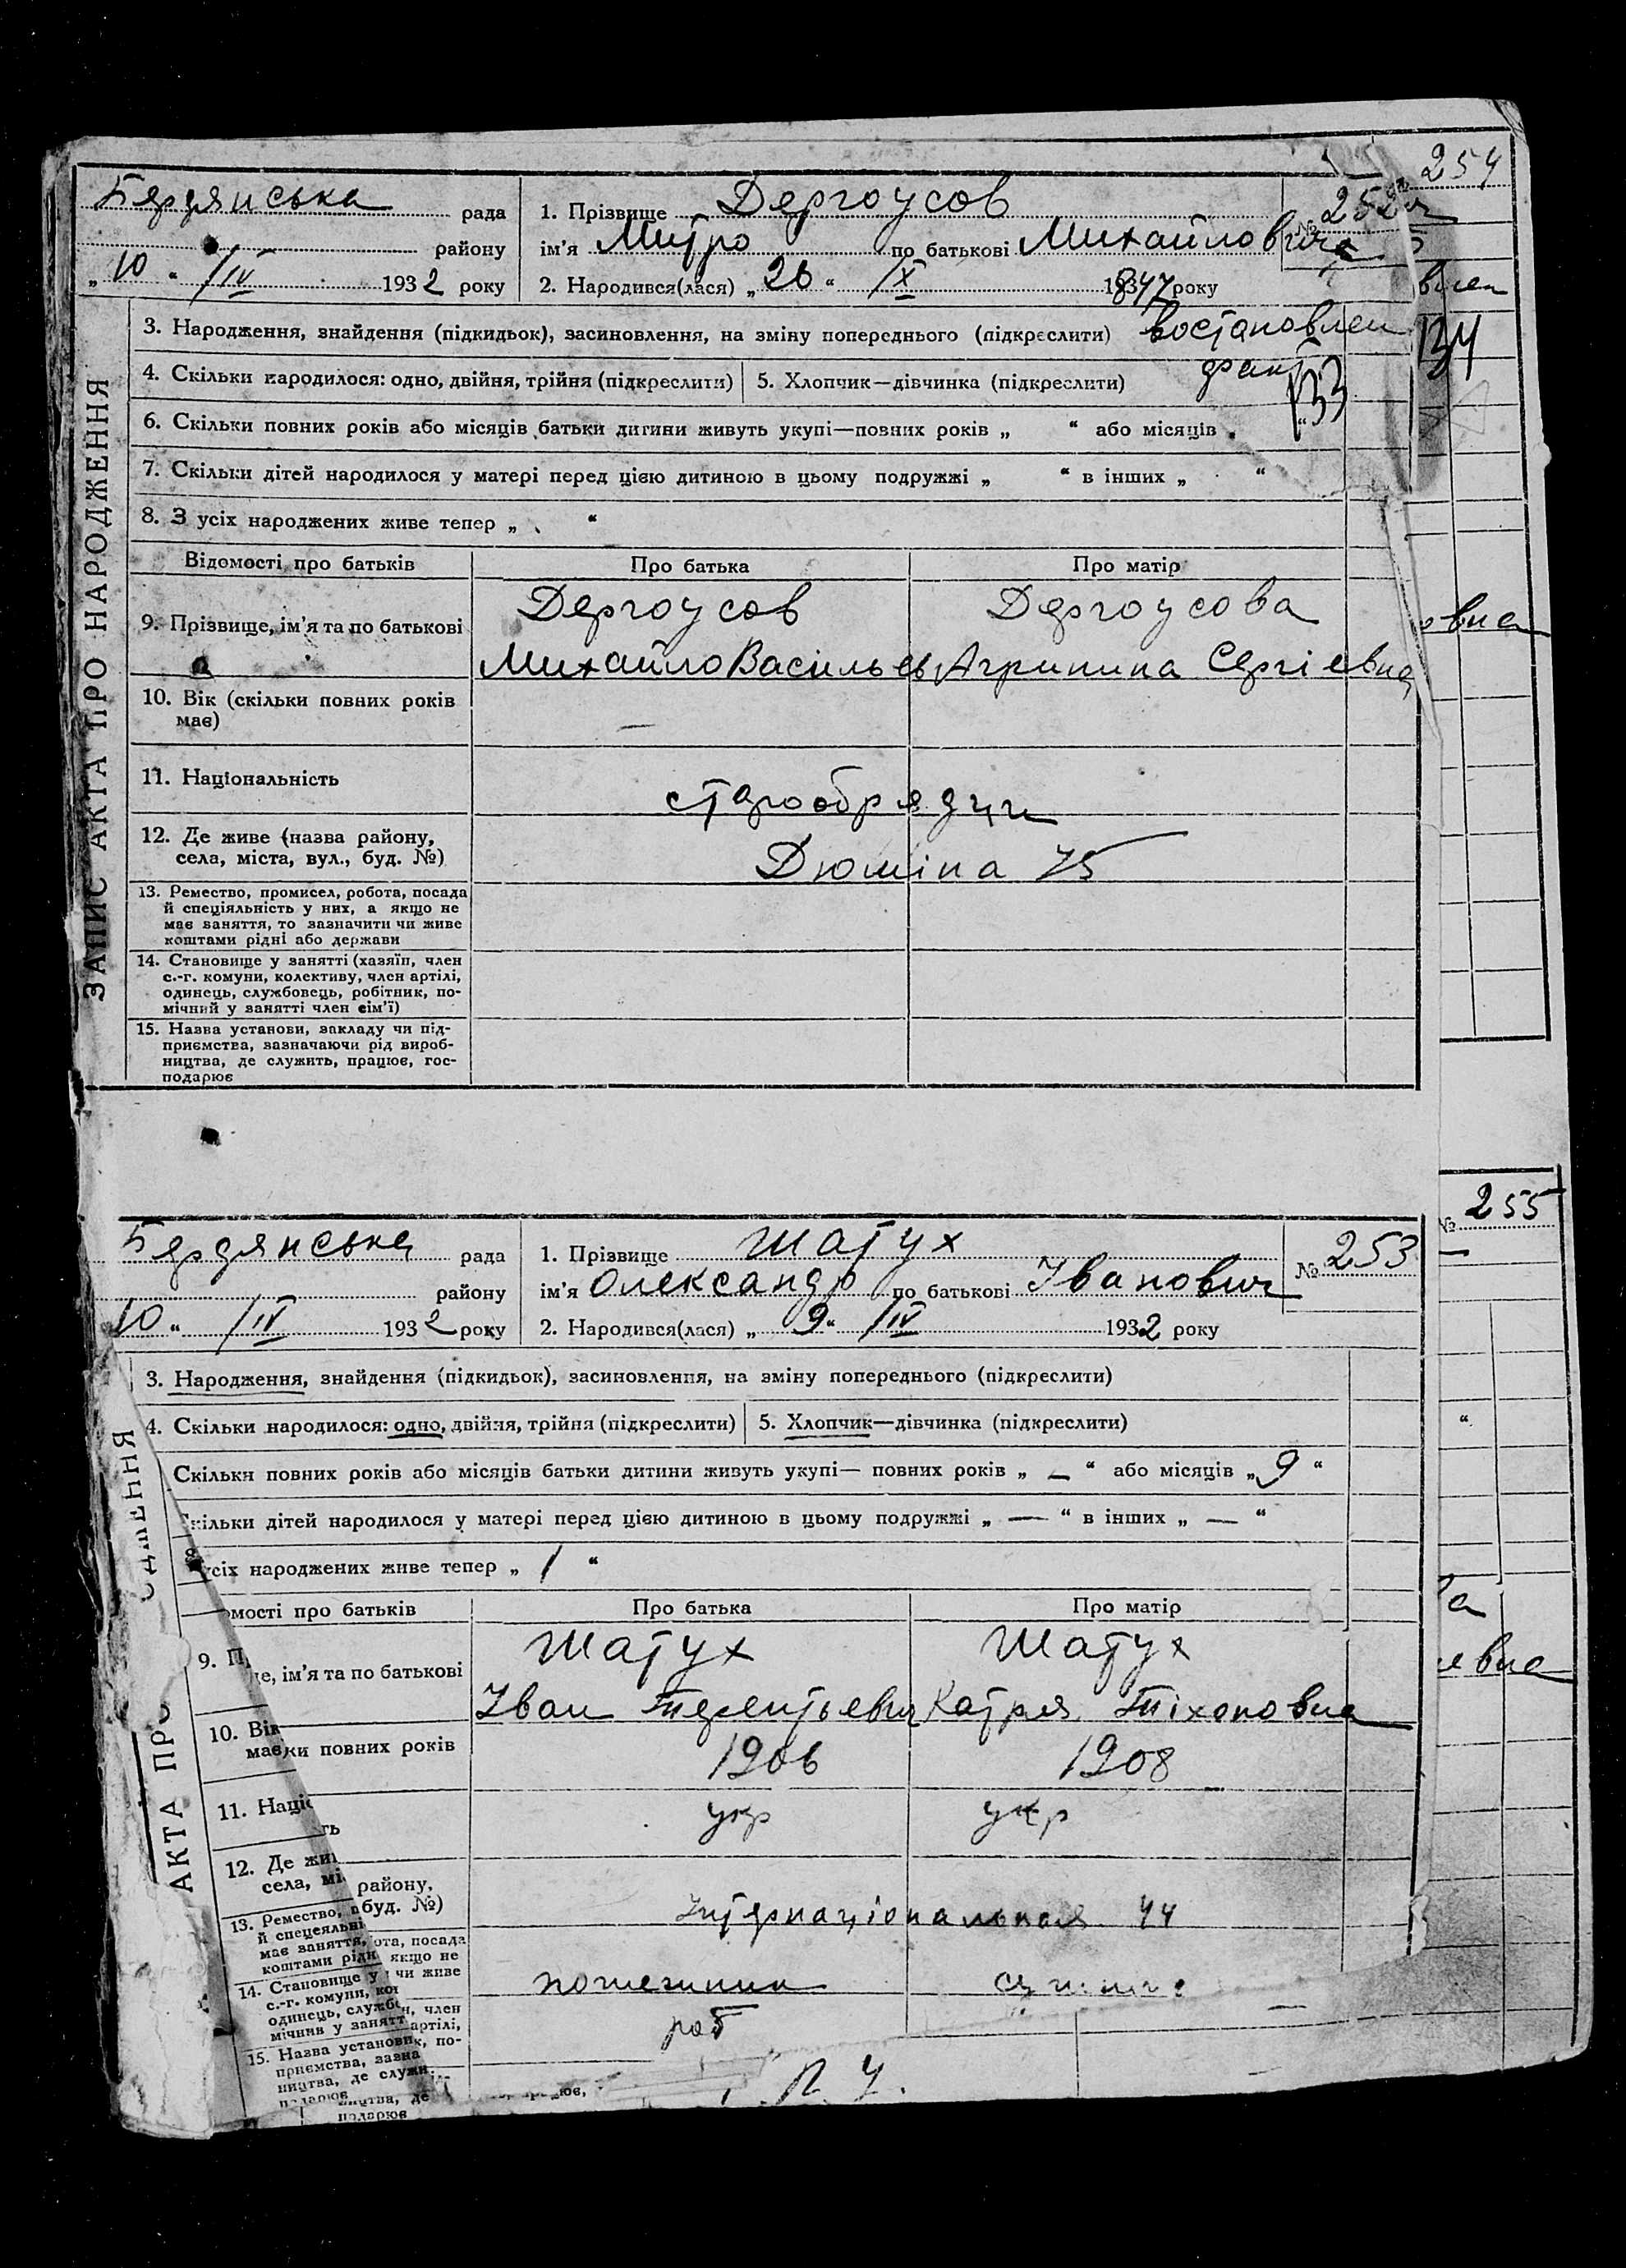 254
Бердянська рада
району
„ 10 “ /IV 1932 року
1. Прізвище Дергоусов
ім’я Митро по батькові Михайлович
№ 252
2. Народився(лася) „ 26 “ /IX 1847 року
вцем
3. Народження, знайдення (підкидьок), засиновлення, на зміну попереднього (підкреслити) востановлен
факт
133
134
4. Скільки народилося: одно, двійня, трійня (підкреслити)
5. Хлопчик—дівчинка (підкреслити)
6. Скільки повних років або місяців батьки дитини живуть укупі—повних років „ “ або місяців „ “
7. Скільки дітей народилося у матері перед цією дитиною в цьому подружжі „ “ в інших „ “
8. З усіх народжених живе тепер „ “
ЗАПИС АКТА ПРО НАРОДЖЕННЯ
Відомості про батьків
Про батька
Про матір
9. Прізвище, ім’я та по батькові
Дергоусов
Михайло Васильев
Дергоусова
Агрипина Сергіевна
овна
10. Вік (скільки повних років
має)
—
11. Національність
старообрядци
12. Де живе (назва району,
села, міста, вул., буд. №)
Дюміна 75
13. Ремество, промисел, робота, посада
й спеціяльність у них, а якщо не
має заняття, то зазначити чи живе
коштами рідні або держави
14. Становище у занятті (хазяїн, член
с.-г. комуни, колективу, член артілі,
одинець, службовець, робітник, по-
мічний у занятті член сім’ї)
15. Назва установи, закладу чи під-
приємства, зазначаючи рід вироб-
ництва, де служить, працює, гос-
подарює
№ 255
Бердянська рада
району
10 “ /IV 1932 року
1. Прізвище Шатух
ім’я Олександр по батькові Іванович
№ 253
2. Народився(лася) „ 9 “ /IV 1932 року
3. Народження, знайдення (підкидьок), засиновлення, на зміну попереднього (підкреслити)
4. Скільки народилося: одно, двійня, трійня (підкреслити)
5. Хлопчик—дівчинка (підкреслити)
Скільки повних років або місяців батьки дитини живуть укупі— повних років „ — “ або місяців „ 9 “
кільки дітей народилося у матері перед цією дитиною в цьому подружжі „ — “ в інших „ — “
усіх народжених живе тепер „ 1 “
АКТА ПРО
мості про батьків
Про батька
Про матір
9. П
е, ім’я та по батькові
Шатух
Іван Терентьевич
Шатух
Катря Тіхоновна
евна
10. Вік
має
ки повних років
1906
1908
11. Націо
ть
укр
укр
12. Де жи
села, мі
району,
буд. №)
Інтернаціональная 44
13. Ремество,
й спецеяльні
має заняття,
коштами рідн
ота, посада
якщо не
чи живе
пожежник
14. Становище у
с.-г. комуни, ко
одинець, служб
мічнив у занятт
н, член
артілі,
к, по-
роб
15. Назва установи
приємства, зазна
ництва, де служи
подарює
ництва, де
подарює
юе,
П. У.